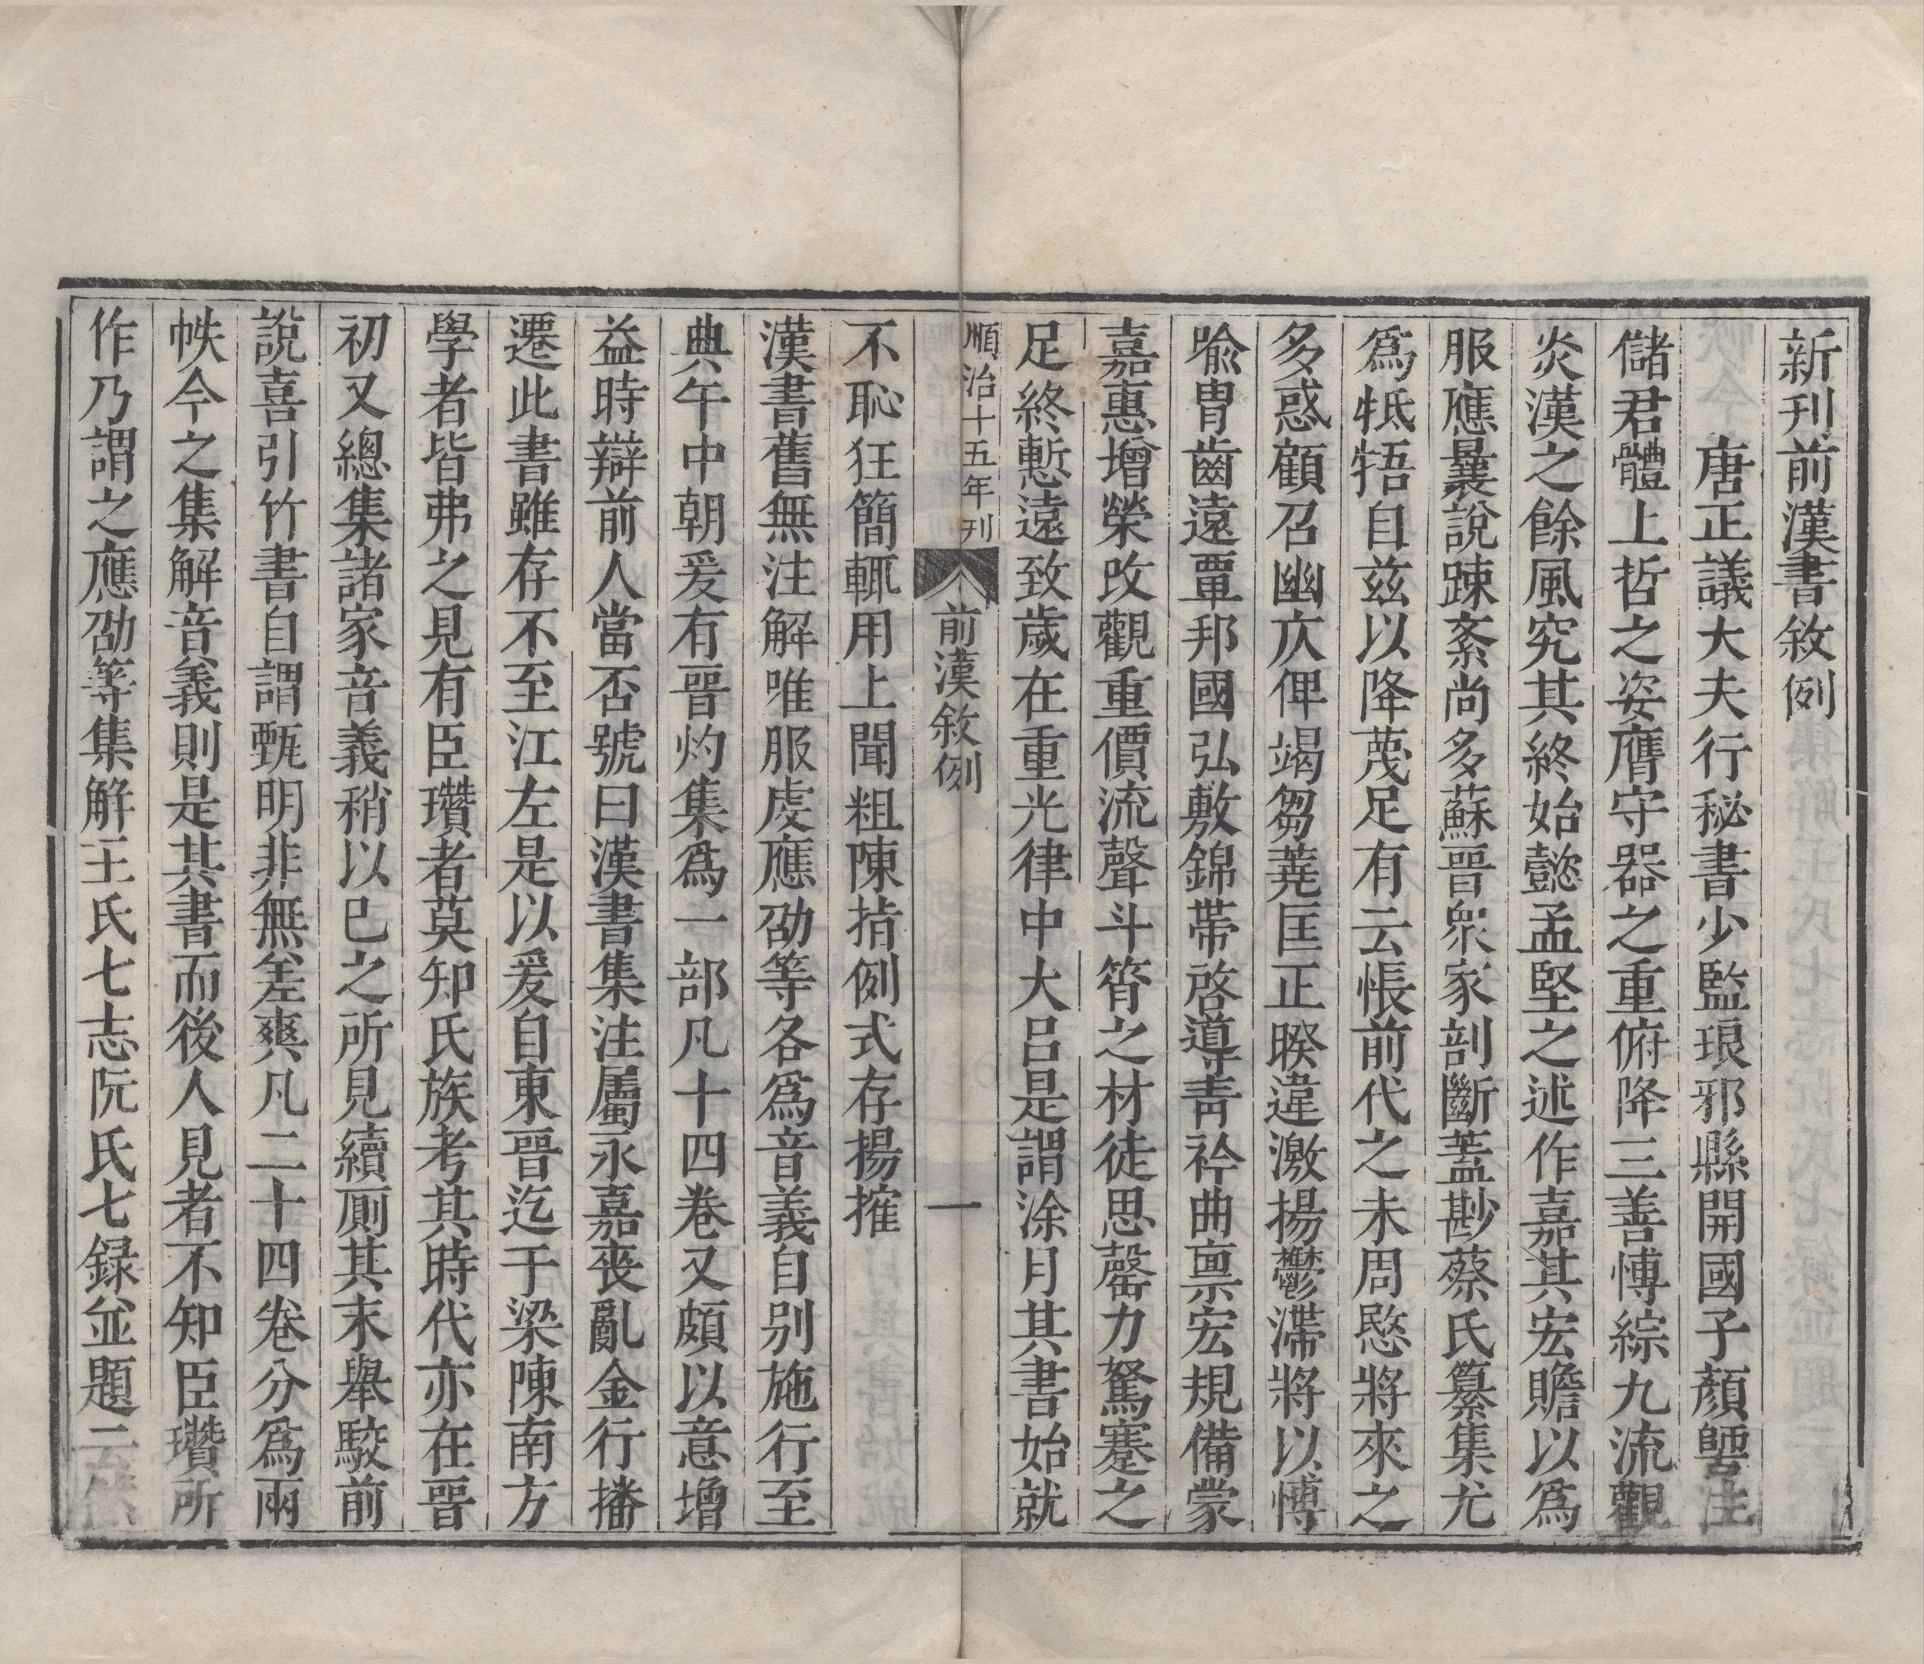 新刊前漢書敘例
唐正議大夫行秘書少監琅邪縣開國子顏師古注
儲君體上哲之姿膺守器之重俯降三善博綜九流觀
炎漢之餘風究其終始懿孟堅之述作嘉其宏贍以爲
服應曩說踈紊尚多蘇晉衆家剖斷蓋尠蔡氏纂集尤
爲牴牾自兹以降蔑足有云悵前代之未周愍將來之
多惑顧召幽仄俾竭芻蕘匡正睽違激揚鬱滯將以博
喻胄齒遠覃邦國弘敷錦帶啓導青衿曲禀宏規備蒙
嘉惠增榮改觀重價流聲斗筲之材徒思罄力駑蹇之
足終慙遠致歲在重光律中大呂是謂涂月其書始就
順治十五年刊
前漢敘例
一
不恥狂簡輒用上聞粗陳指例式存揚搉
漢書舊無注解唯服虔應劭等各爲音義自別施行至
典午中朝爰有晉灼集爲一部凡十四卷又頗以意增
益時辯前人當否號曰漢書集注屬永嘉喪亂金行播
遷此書雖存不至江左是以爰自東晉迄于梁陳南方
學者皆弗之見有臣瓚者莫知氏族考其時代亦在晉
初又總集諸家音義稍以已之所見續厠其末舉駮前
說喜引竹書自謂甄明非無差爽凡二十四卷分爲兩
帙今之集解音義則是其書而後人見者不知臣瓚所
作乃謂之應劭等集解王氏七志阮氏七録並題云然